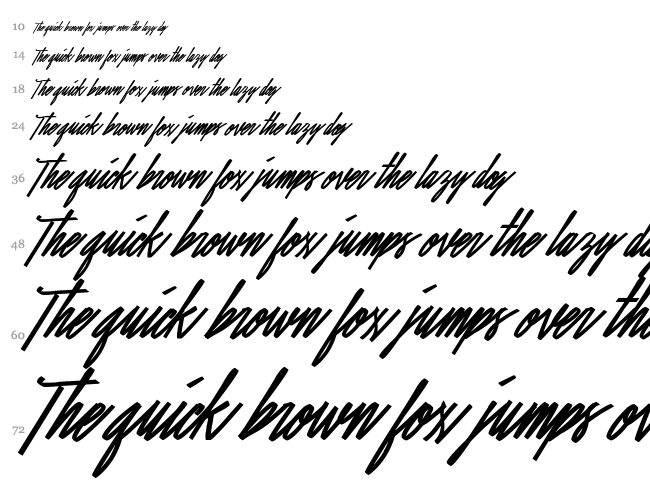 10 The quick brown fox jumps over the lazy dog
14 The quick brown fox jumps over the lazy dog
18 The quick brown fox jumps over the lazy dog
24 The quick brown fox jumps over the lazy dog
36 The quick brown fox jumps over the lazy dog
48 The quick brown fox jumps over the lazy do
60 The quick brown fox jumps over th
72 The quick brown fox jumps ov